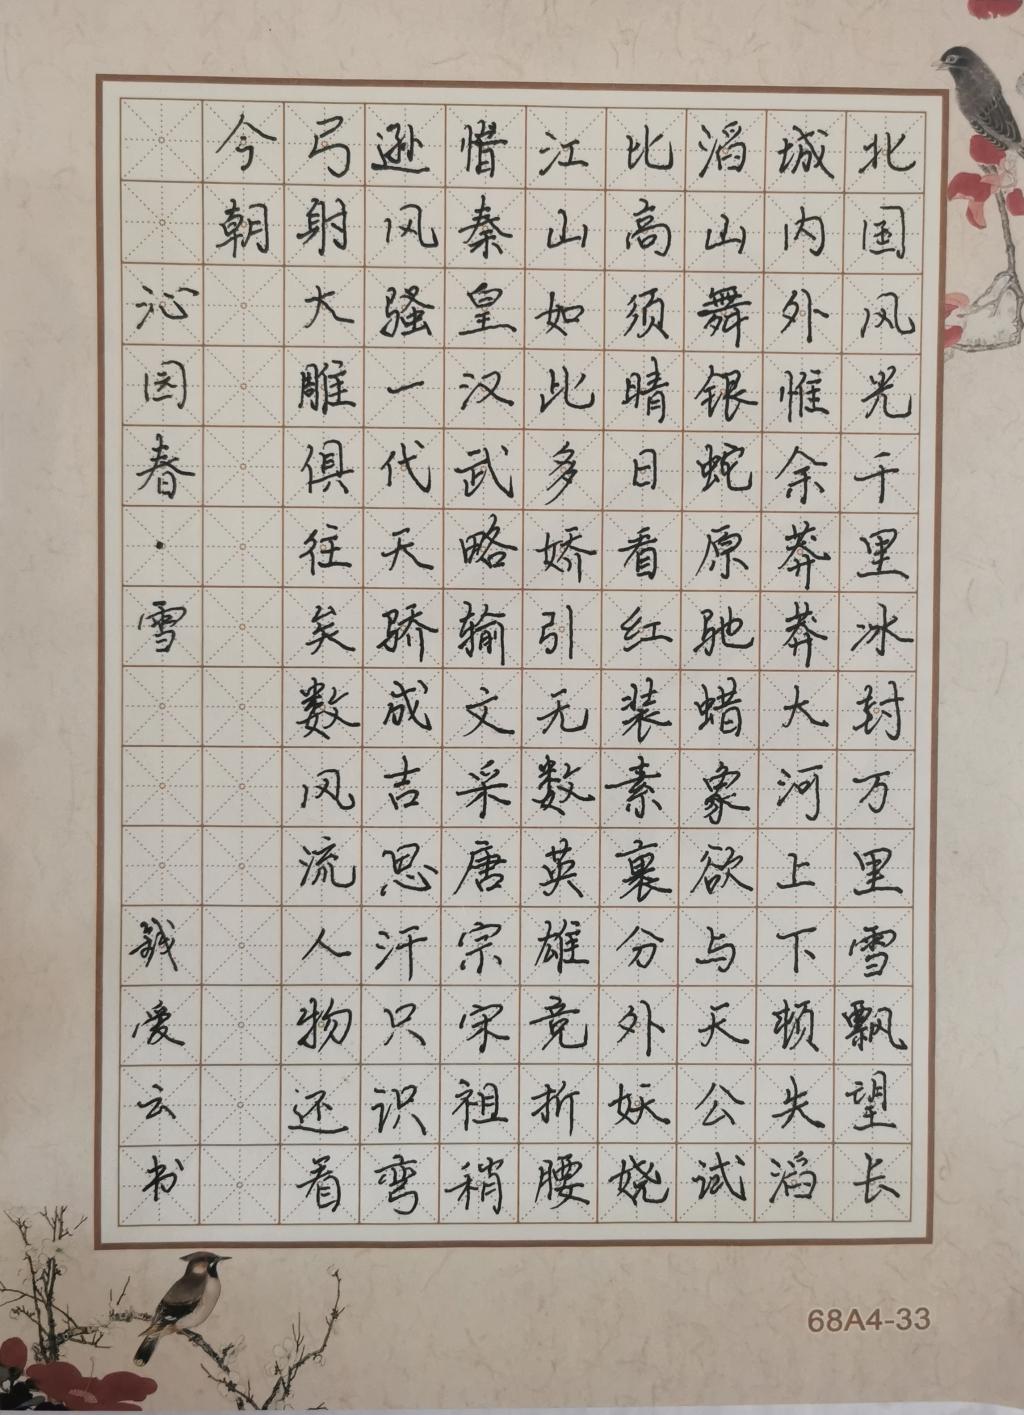 北国风光千里冰封万里雪飘望长
城内外惟余莽莽大河上下顿失滔
滔山舞银蛇原驰蜡象欲与天公试
比高须晴日看红装素裹分外妖娆
江山如此多娇引无数英雄竞折腰
惜秦皇汉武略输文采唐宗宋祖稍
逊风骚一代天骄成吉思汗只识弯
弓射大雕俱往矣数风流人物还看
今朝
沁园春·雪 钱爱云书
68A4-33